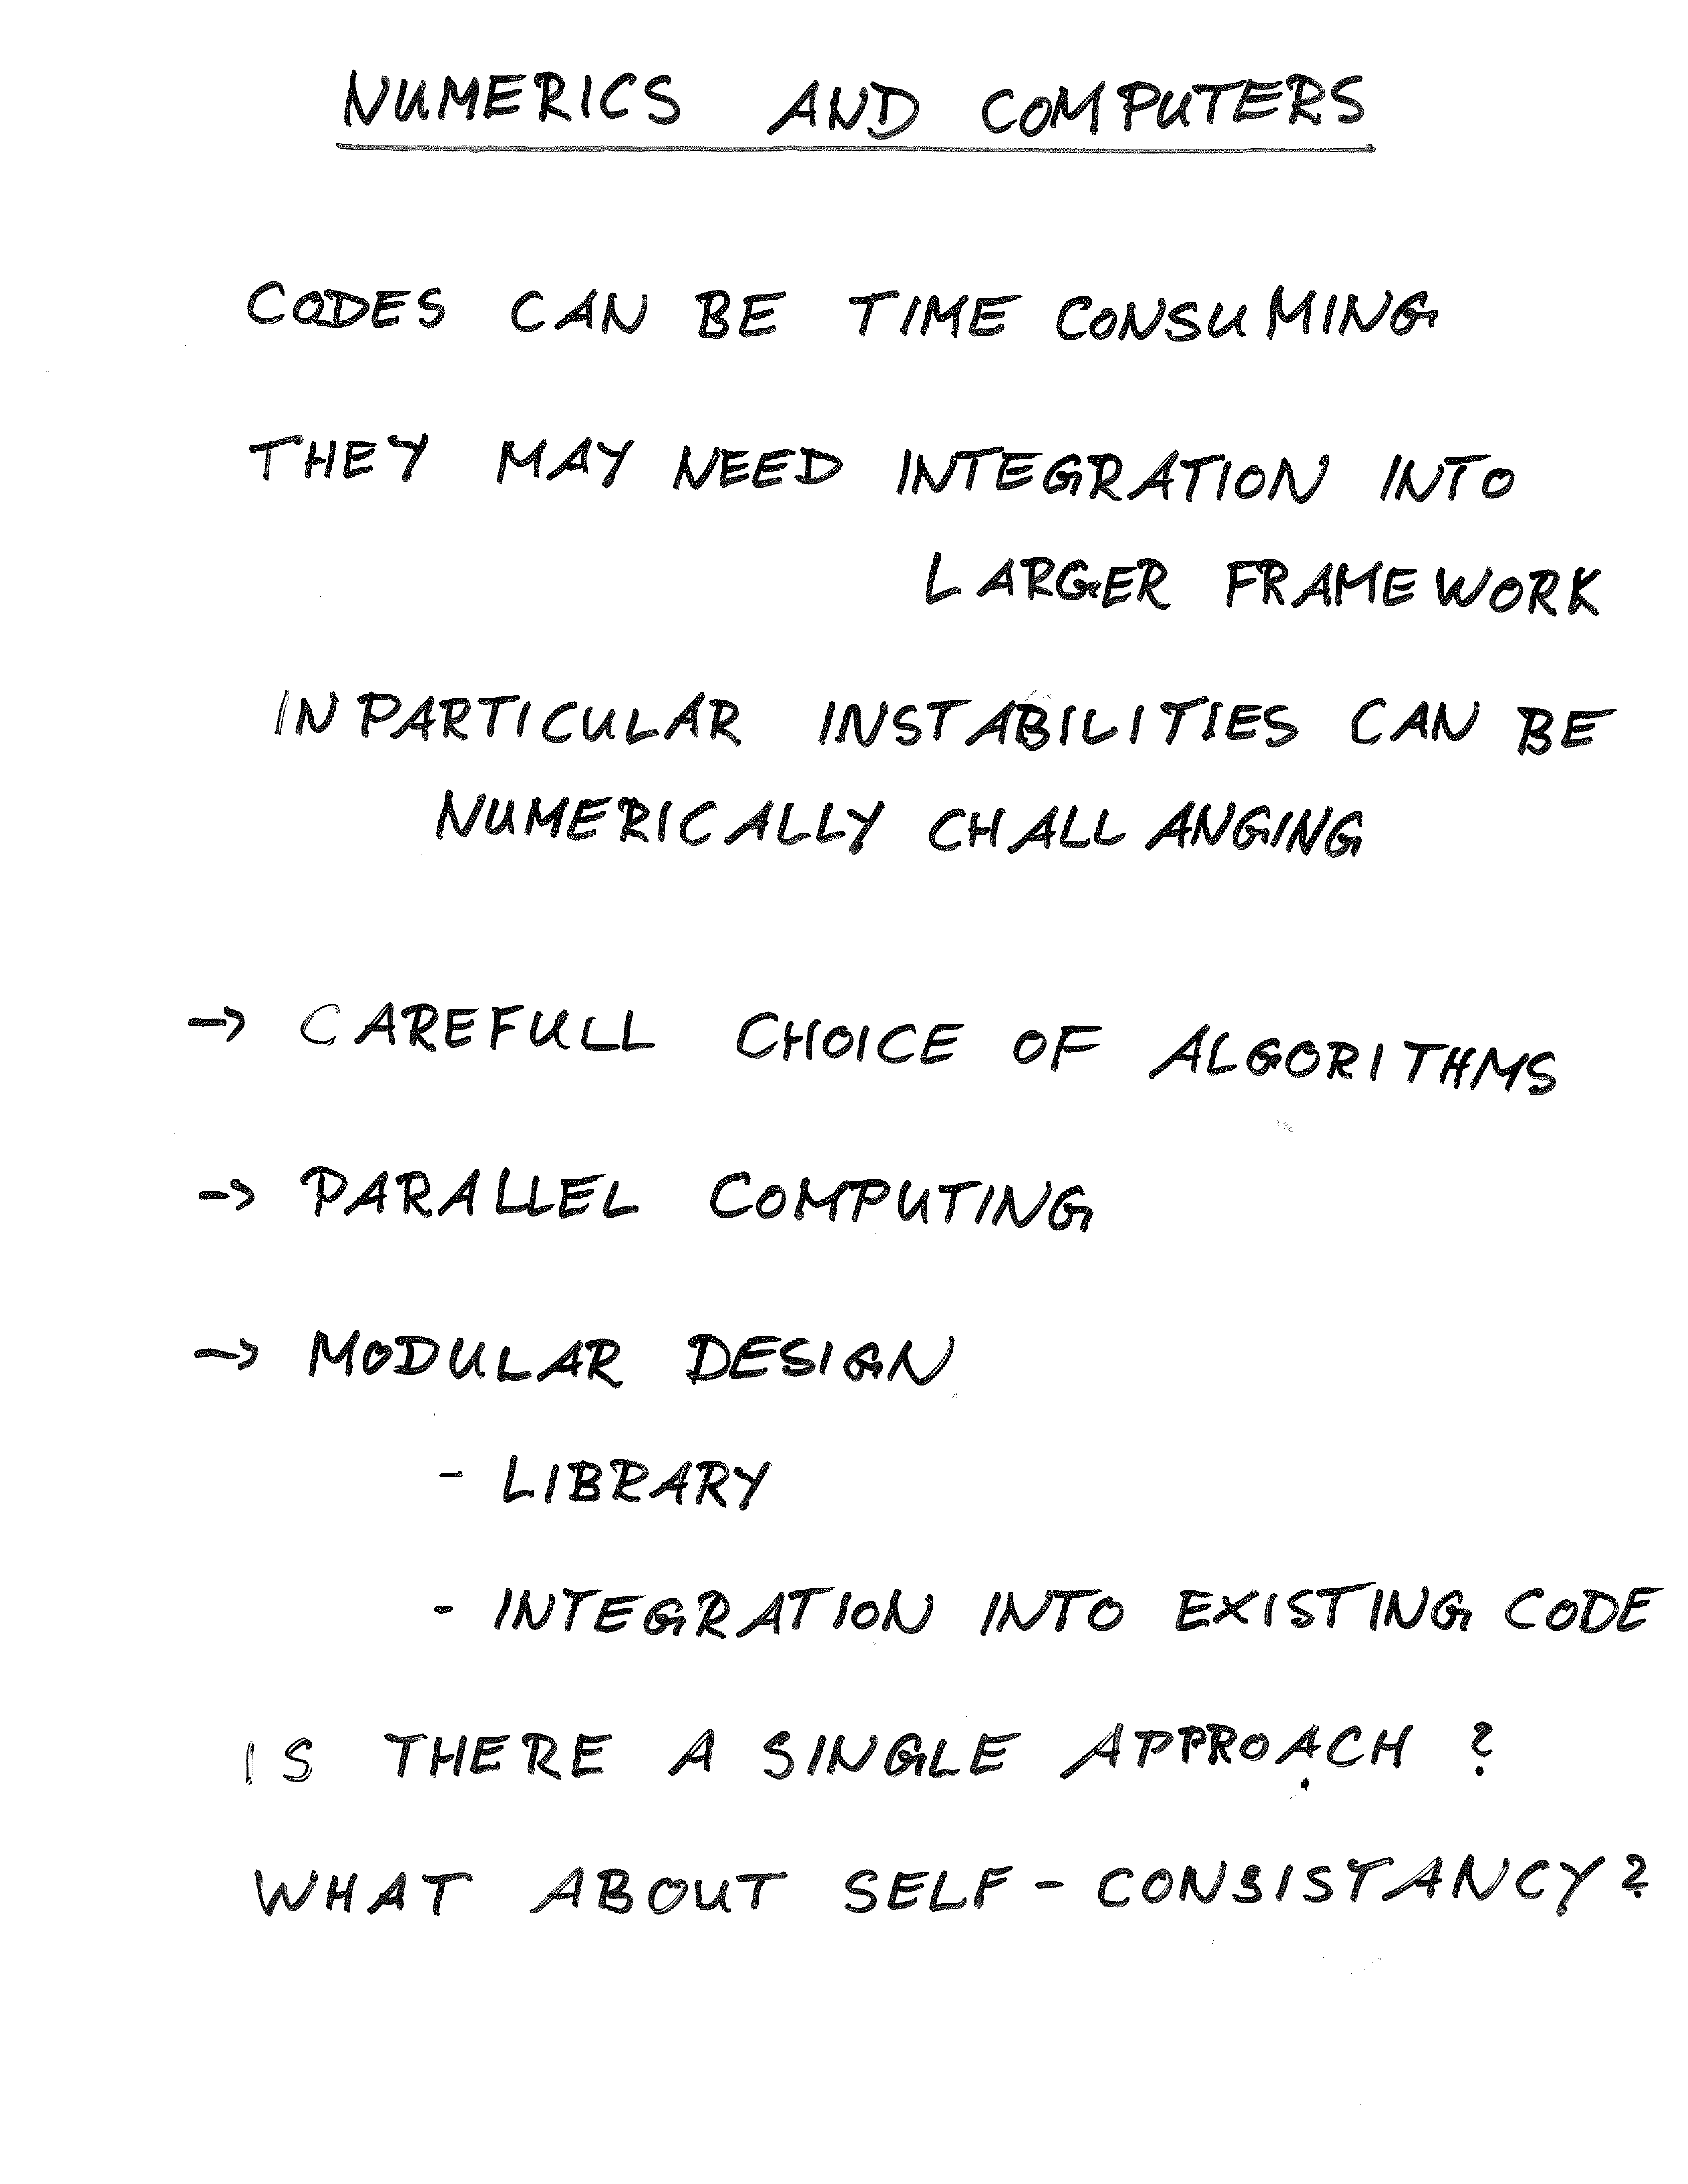 NUMERICS AND COMPUTERS
CODES CAN BE TIME CONSUMING
THEY MAY NEED INTEGRATION INTO
LARGER FRAMEWORK
IN PARTICULAR INSTABILITIES CAN BE
NUMERICALLY CHALLANGING
-> CAREFULL CHOICE OF ALGORITHMS
-> PARALLEL COMPUTING
-> MODULAR DESIGN
- LIBRARY
- INTEGRATION INTO EXISTING CODE
IS THERE A SINGLE APPROACH ?
WHAT ABOUT SELF - CONSISTANCY ?